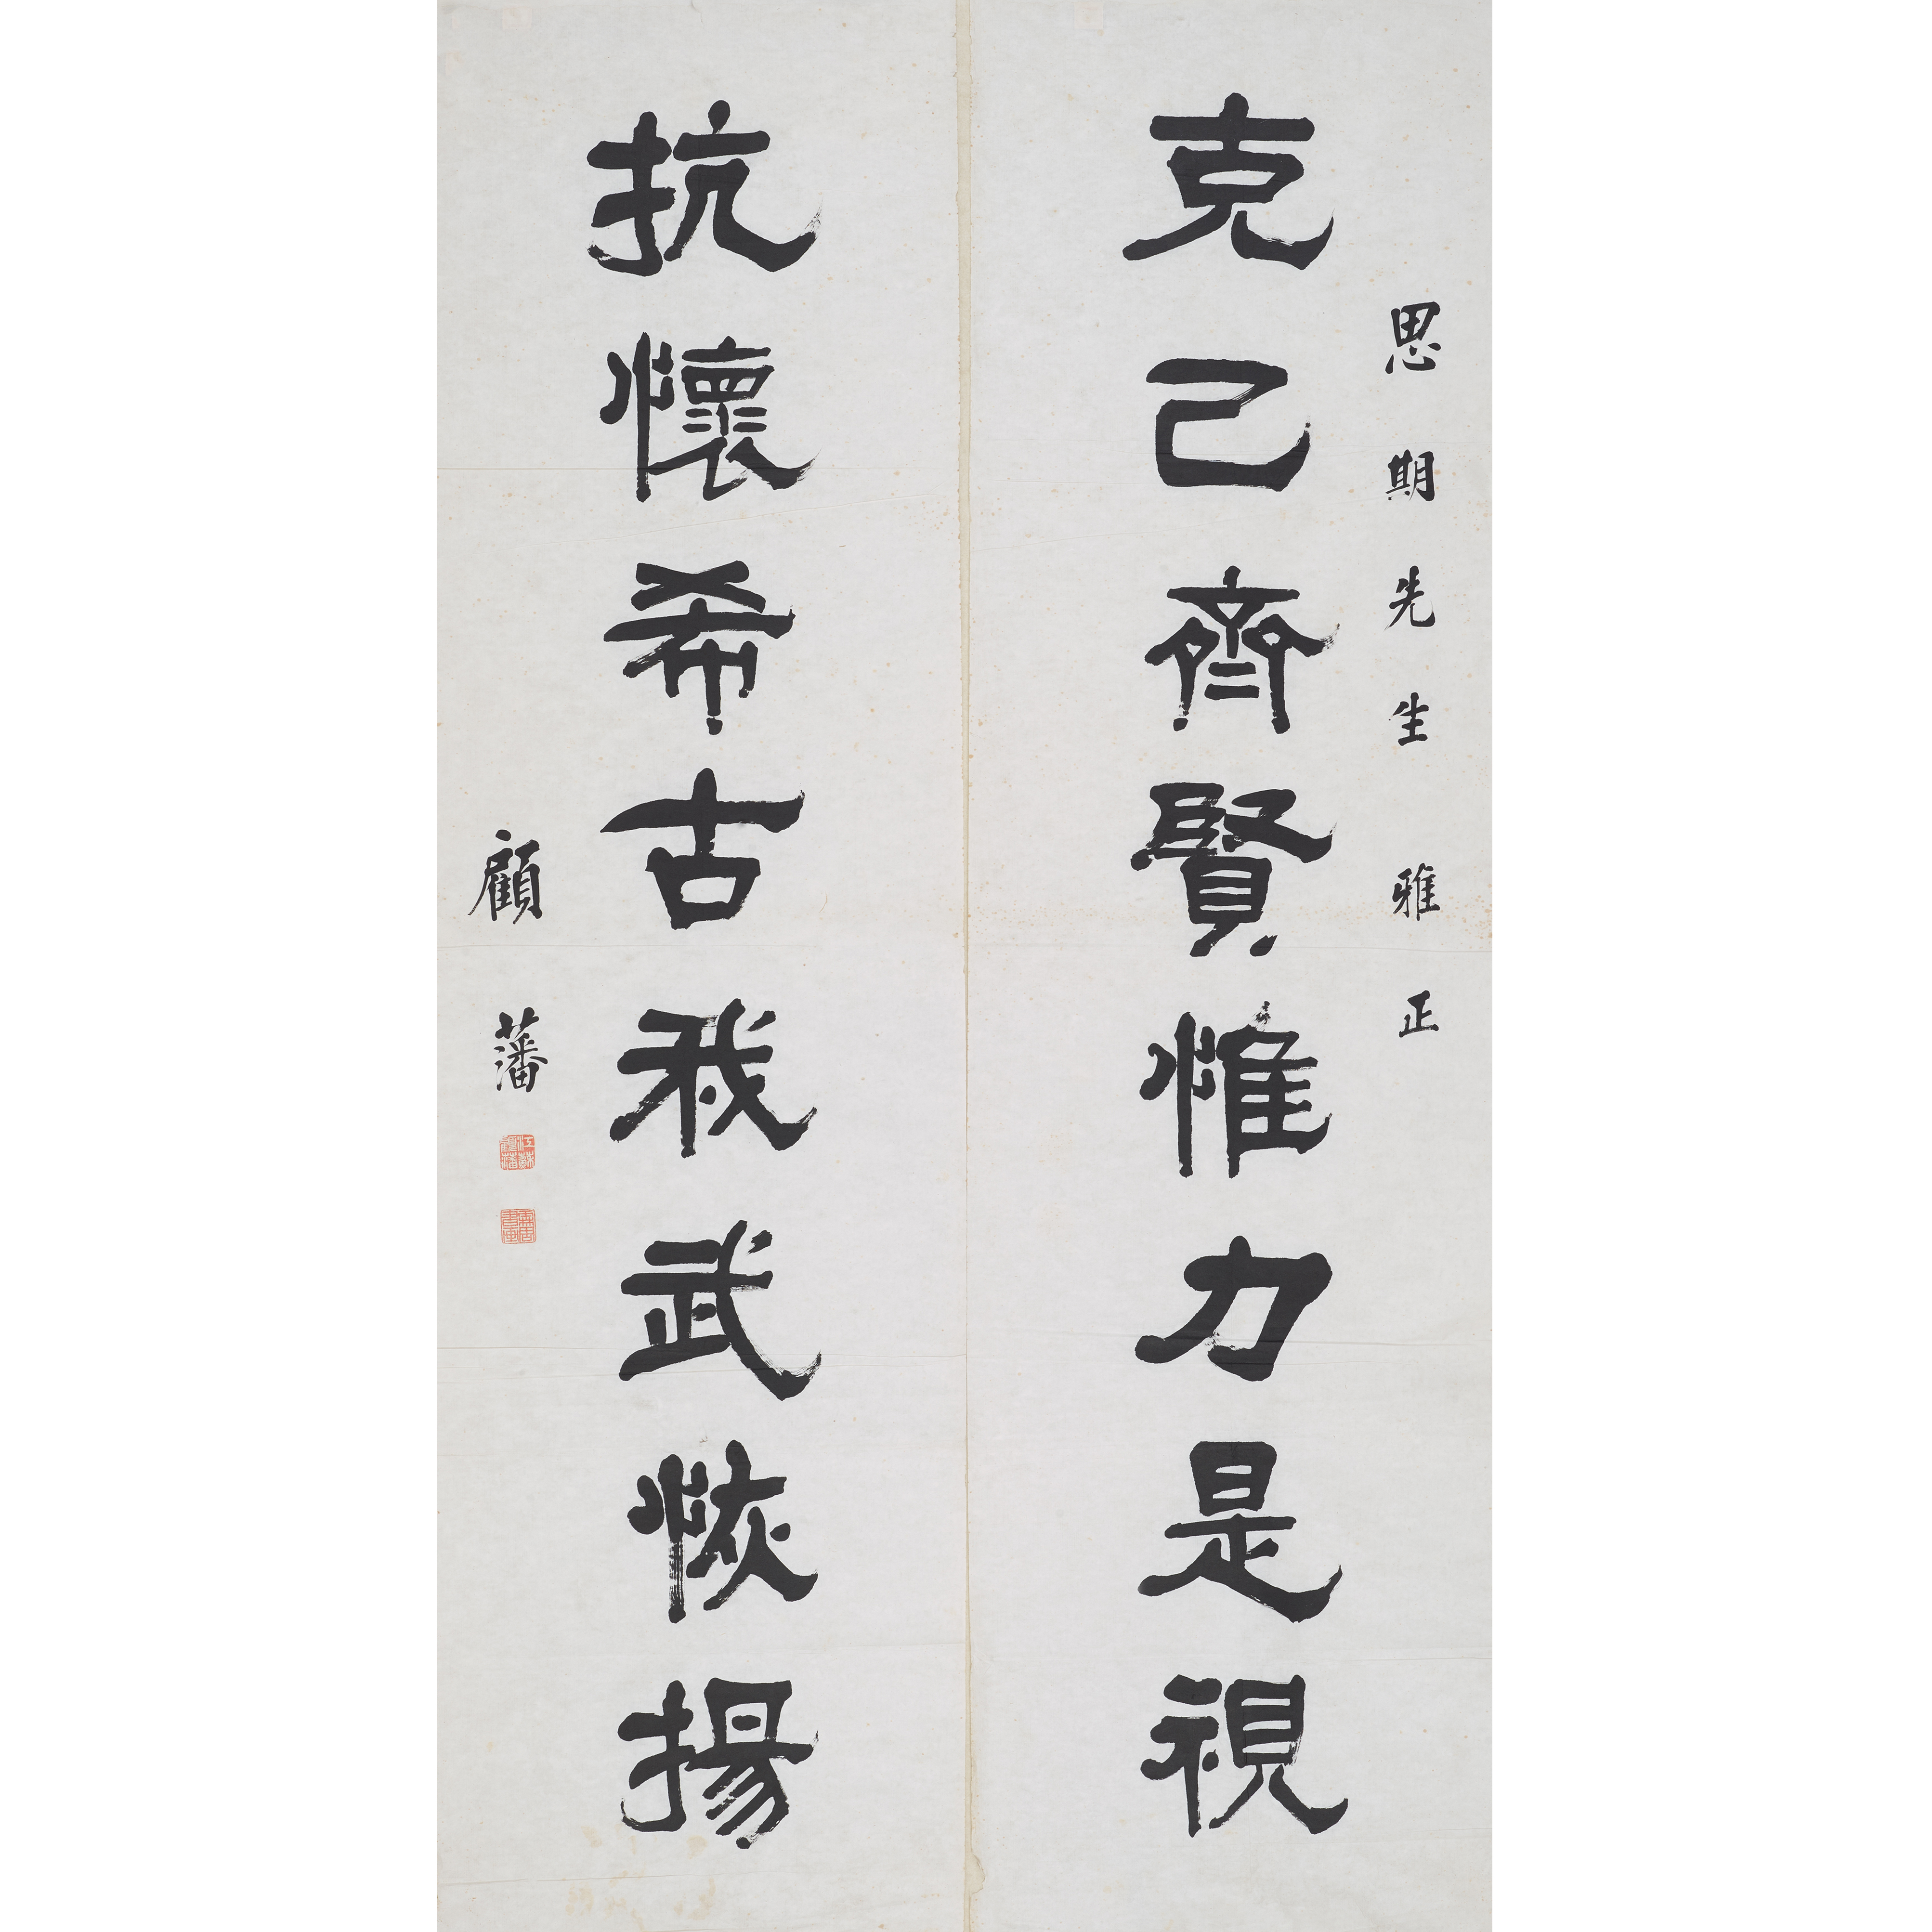 思期先生雅正
克己齊賢惟力是視
抗懷希古我武恢揚
顧藩